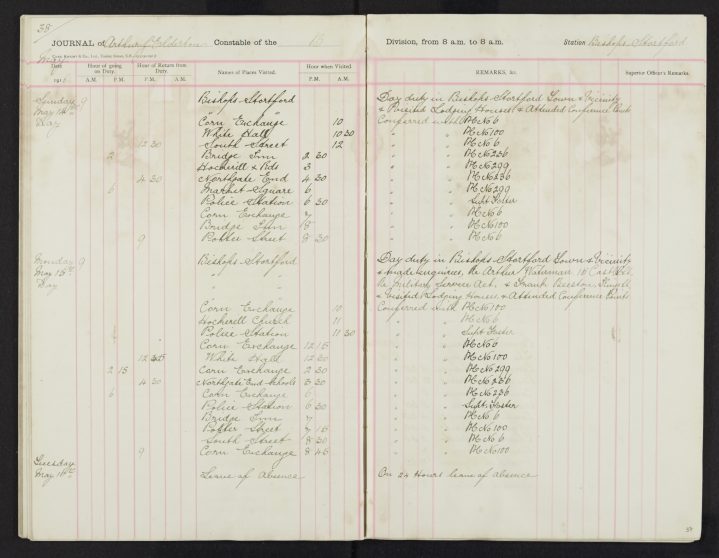 38
JOURNAL of Arthur Elderton Constable of the B Division, from 8 a.m. to 8 a.m. Station Bishops Stortford
Date Hour of going on Duty. Hour of Return from Duty. Names of Places Visited. Hour when Visited. REMARKS, &c. Superior Officer's Remarks.
A.M. P.M. P.M. A.M. P.M. A.M.
Sunday 9 Bishops-Stortford Day duty in Bishops-Stortford Town & Vicinity
May 14th " " & Visited Lodging Houses & Attended Conference Points
Day Corn Exchange 10 Conferred with PC No 6
White Hall 10 30 " " PC No 100
12 30 South Street 12 " " PC No 6
2 Bridge Inn 2 30 " " PC No 236
Hockerill 3 " " PC No 299
4 30 Northgate End 4 30 " " PC No 236
6 Market-Square 6 " " PC No 299
Police Station 6 30 " " Supt Foster
Corn Exchange 7 " " PC No 6
Bridge Inn 8 " " PC No 100
9 Potter Street 8 30 " " PC No 6
Monday 9 Bishops-Stortford Day duty in Bishops-Stortford Town & Vicinity
May 15th " " & made enquiries, Re Arthur Waterman
Day " " Re Military Service Act, & Frank
& Visited Lodging Houses & Attended Conference Points
Corn Exchange 10 Conferred with PC No 100
Hockerill Church 11 " " PC No 6
Police Station 11 30 " " Supt Foster
Corn Exchange 12 15 " " PC No 6
12 White Hall 12 30 " " PC No 100
2 15 Corn Exchange 2 30 " " PC No 299
4 30 Northgate End Schools 3 30 " " PC No 236
6 Corn Exchange 6 " " PC No 236
Police Station 6 30 " " Supt. Foster
Bridge Inn 7 " " PC No 6
Potter Street 7 15 " " PC No 100
South Street 8 30 " " PC No 6
9 Corn Exchange 8 45 " " PC No 100
Tuesday
May 16th Leave of Absence On 24 Hours leave of absence